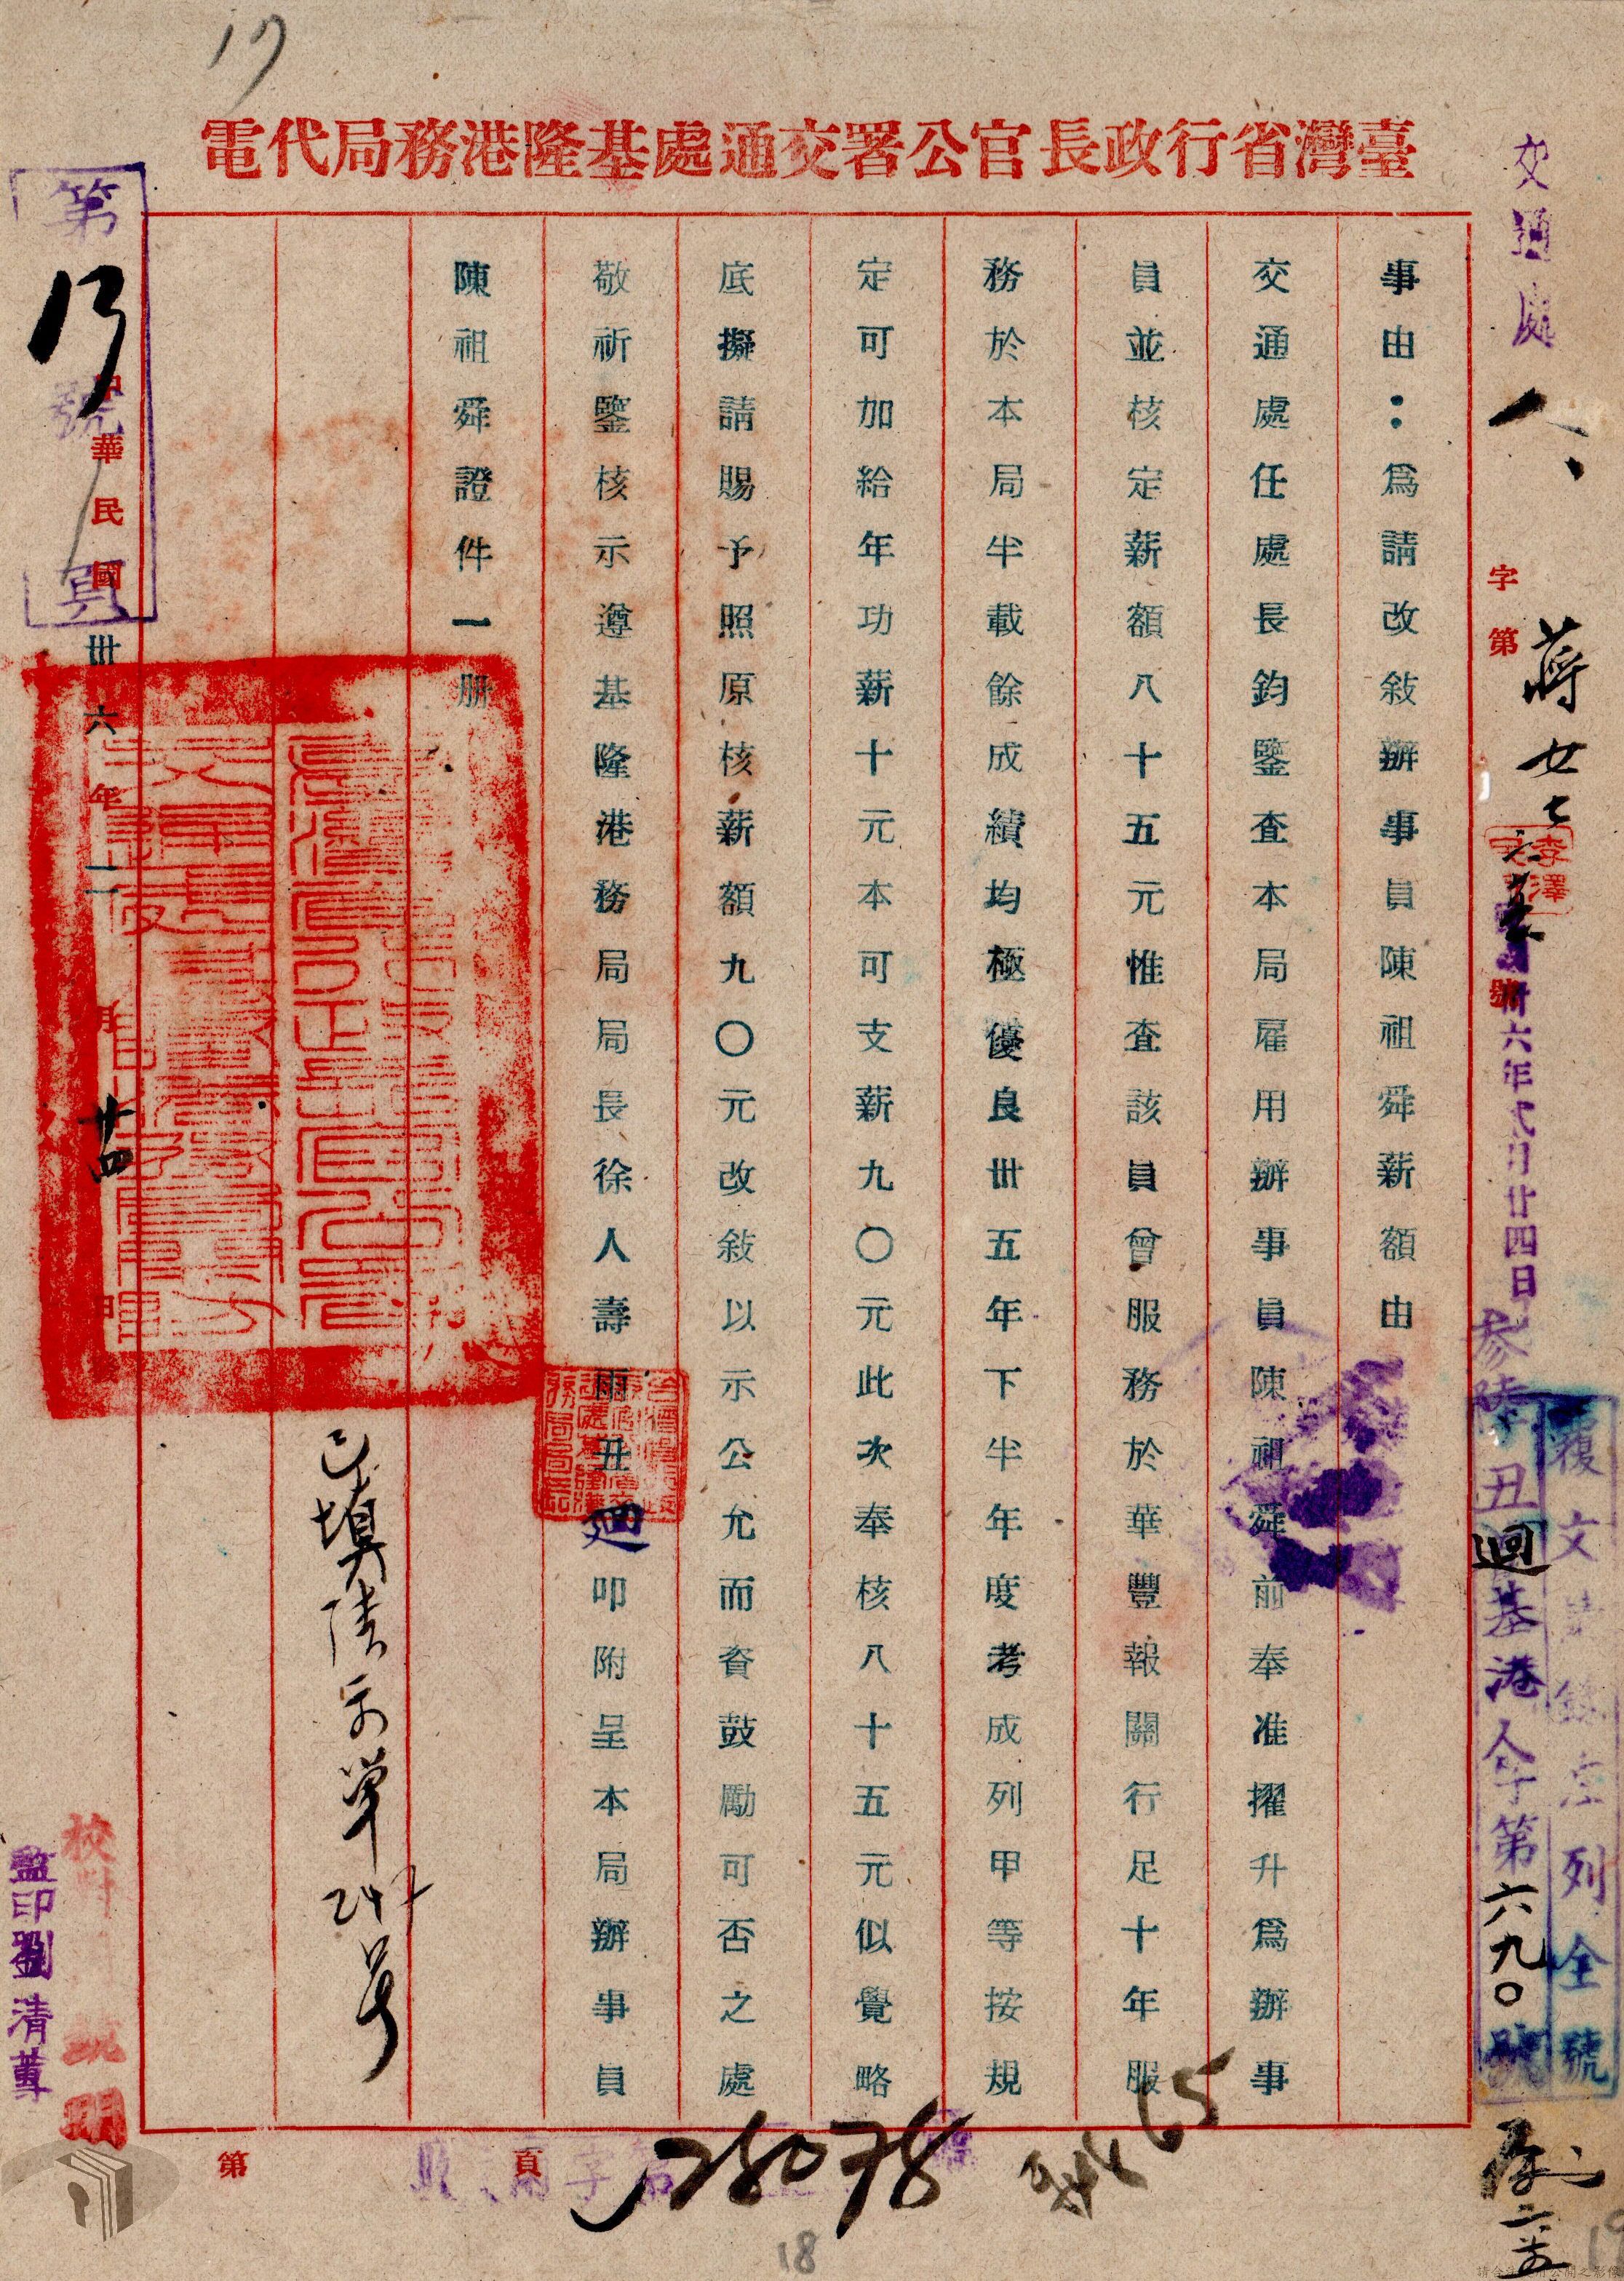 17
臺灣省行政長官公署交通處基隆港務局代電
交通處
人
字第 號
蔣女士
卅六年弍月廿四日
丑迴基港人字第六九〇號
覆文請錄左列全號
事由：爲請改敍辦事員陳祖舜薪額由
交通處任處長鈞鑒查本局雇用辦事員陳祖舜前奉准擢升爲辦事
員並核定薪額八十五元惟查該員曾服務於華豐報關行足十年服
務於本局半載餘成績均極優良卅五年下半年度考成列甲等按規
定可加給年功薪十元本可支薪九〇元此次奉核八十五元似覺略
底擬請賜予照原核薪額九〇元改敍以示公允而資鼓勵可否之處
敬祈鑒核示遵基隆港務局局長徐人壽雨丑迴叩附呈本局辦事員
陳祖舜證件一册
已填請示單247号
中華民國卅六年二月廿四日
第13號 頁
校對
監印劉清蓴
第 頁
28078
65
18
19